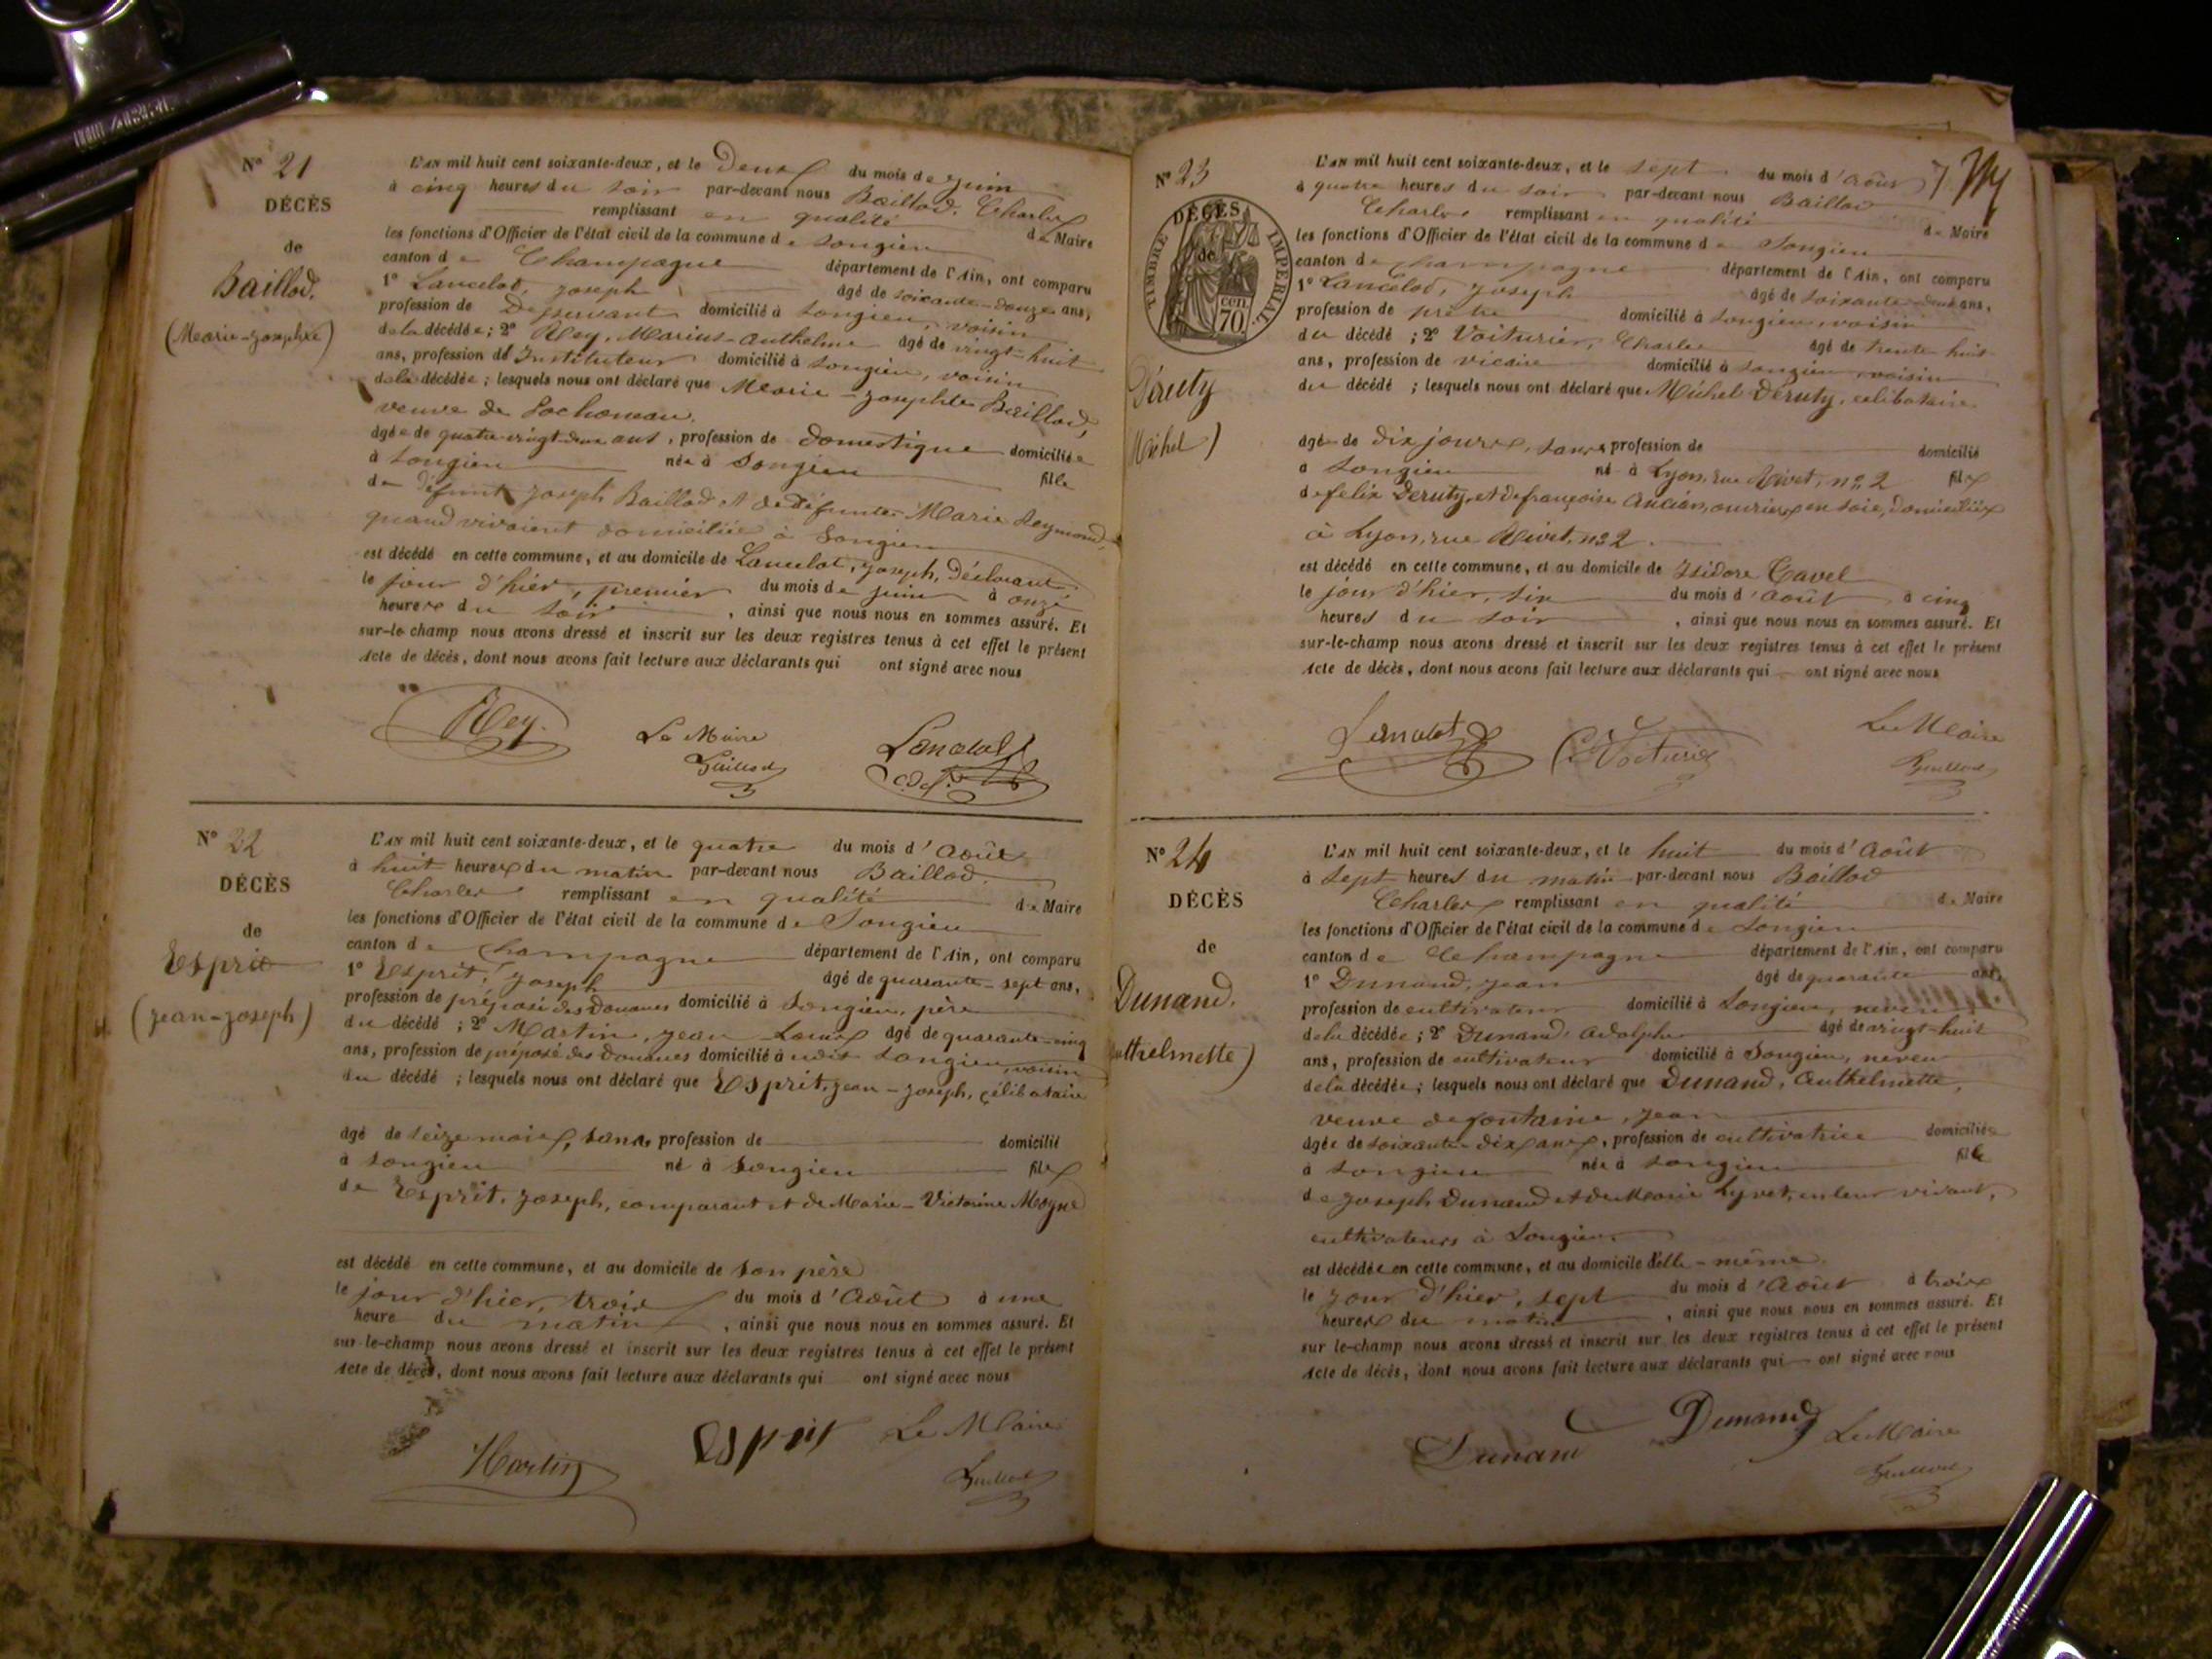 N° 21
DÉCÈS
de
Baillod,
(Marie-Josephte)
L'AN mil huit cent soixante-deux, et le Deux du mois de juin
à cinq heures du soir par-devant nous Baillod, Charles
remplissant en qualité de Maire
les fonctions d'Officier de l'état civil de la commune de Songieu
canton de Champagne département de l'Ain, ont comparu
1° Lancelot, Joseph âgé de soixante-douze ans,
profession de Desservant domicilié à Songieu, voisin
de la décédée; 2° Rey, Marius-Anthelme âgé de vingt-huit
ans, profession d'Instituteur domicilié à Songieu, voisin
de la décédée; lesquels nous ont déclaré que Marie-Josephte Baillod,
veuve de
âgée de quatre-vingt-deux ans, profession de domestique domiciliée
à Songieu née à Songieu fille
de défunt Joseph Baillod et de défunte Marie Reymond,
quand vivaient domiciliés à Songieu
est décédé en cette commune, et au domicile de Lancelot, Joseph, Déclarant
le jour d'hier, premier du mois de juin à onze
heures du soir, ainsi que nous nous en sommes assuré. Et
sur-le-champ nous avons dressé et inscrit sur les deux registres tenus à cet effet le présent
Acte de décès, dont nous avons fait lecture aux déclarants qui ont signé avec nous
Rey
Le Maire
Baillod
Lancelot
N° 22
DÉCÈS
de
Esprit
(Jean-Joseph)
L'AN mil huit cent soixante-deux, et le quatre du mois d'Août
à huit heures du matin par-devant nous Baillod
Charles remplissant en qualité de Maire
les fonctions d'Officier de l'état civil de la commune de Songieu
canton de Champagne département de l'Ain, ont comparu
1° Esprit, Joseph âgé de quarante-sept ans,
profession de préposé des Douanes domicilié à Songieu, père
du décédé; 2° Martin, Jean-Louis âgé de quarante-cinq
ans, profession de préposé des Douanes domicilié à udit Songieu, voisin
du décédé; lesquels nous ont déclaré que Esprit, Jean-Joseph, célibataire
âgé de seize mois, sans profession de domicilié
à Songieu né à Songieu fils
de Esprit, Joseph, comparant et de Marie-Victorine Moyne
est décédé en cette commune, et au domicile de son père
le jour d'hier, trois du mois d'Août à une
heure du matin, ainsi que nous nous en sommes assuré. Et
sur-le-champ nous avons dressé et inscrit sur les deux registres tenus à cet effet le présent
Acte de décès, dont nous avons fait lecture aux déclarants qui ont signé avec nous
Martin
Esprit
Le Maire
Baillod
N° 23
TIMBRE IMPERIAL
70 cen
DÉCÈS
de
Déruty
Michel)
L'AN mil huit cent soixante-deux, et le sept du mois d'Août
à quatre heures du soir par-devant nous Baillod
Charles remplissant en qualité de Maire
les fonctions d'Officier de l'état civil de la commune de Songieu
canton de Champagne département de l'Ain, ont comparu
1° Lancelot, Joseph âgé de soixante-deux ans,
profession de prêtre domicilié à Songieu, voisin
du décédé; 2° Voiturier, Charles âgé de trente-huit
ans, profession de vicaire domicilié à Songieu, voisin
du décédé; lesquels nous ont déclaré que Michel Déruty, célibataire
âgé de dix jours, sans profession de domicilié
à Songieu né à Lyon, rue Rivet, n° 2 fils
de felix Deruty, et de françoise Ancian, ouvriers en soie, domiciliés
à Lyon, rue Rivet, n° 2.
est décédé en cette commune, et au domicile de Isidore Tavel
le jour d'hier, six du mois d'Août à cinq
heures du soir, ainsi que nous nous en sommes assuré. Et
sur-le-champ nous avons dressé et inscrit sur les deux registres tenus à cet effet le présent
Acte de décès, dont nous avons fait lecture aux déclarants qui ont signé avec nous
Lancelot
C. Voiturier
Le Maire
Baillod
N° 24
DÉCÈS
de
Dunand,
Anthelmette)
L'AN mil huit cent soixante-deux, et le huit du mois d'Août
à Sept heures du matin par-devant nous Baillod
Charles remplissant en qualité de Maire
les fonctions d'Officier de l'état civil de la commune de Songieu
canton de Champagne département de l'Ain, ont comparu
1° Dunand, Jean âgé de quarante ans,
profession de cultivateur domicilié à Songieu, neveu
de la décédée; 2° Dunand Adolphe âgé de vingt-huit
ans, profession de cultivateur domicilié à Songieu, neveu
de la décédée; lesquels nous ont déclaré que Dunand, Anthelmette,
veuve de fontaine, Jean
âgée de soixante-dix ans, profession de cultivatrice domiciliée
à Songieu née à Songieu fille
de Joseph Dunand et de Marie Lyvet, en leur vivant,
cultivateurs à Songieu
est décédée en cette commune, et au domicile d'elle-même
le jour d'hier, sept du mois d'Août à trois
heures du matin, ainsi que nous nous en sommes assuré. Et
sur-le-champ nous avons dressé et inscrit sur les deux registres tenus à cet effet le présent
Acte de décès, dont nous avons fait lecture aux déclarants qui ont signé avec nous
Dunand
Dunand
Le Maire
Baillod